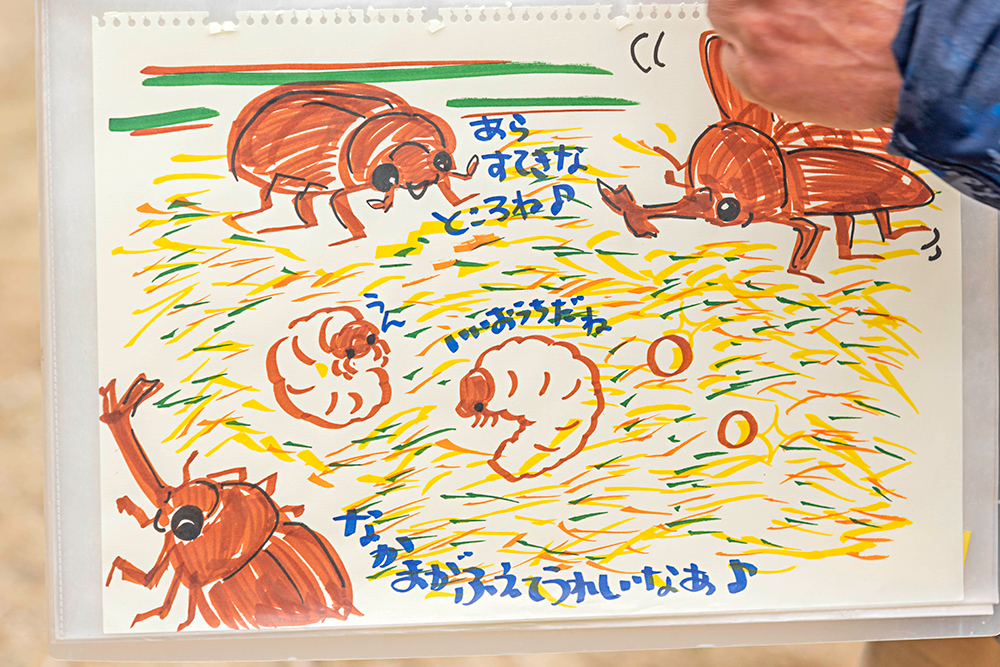 あら
すてきな
ところね♪
うん
いいおうちだね
なかまがふえてうれしいなぁ♪